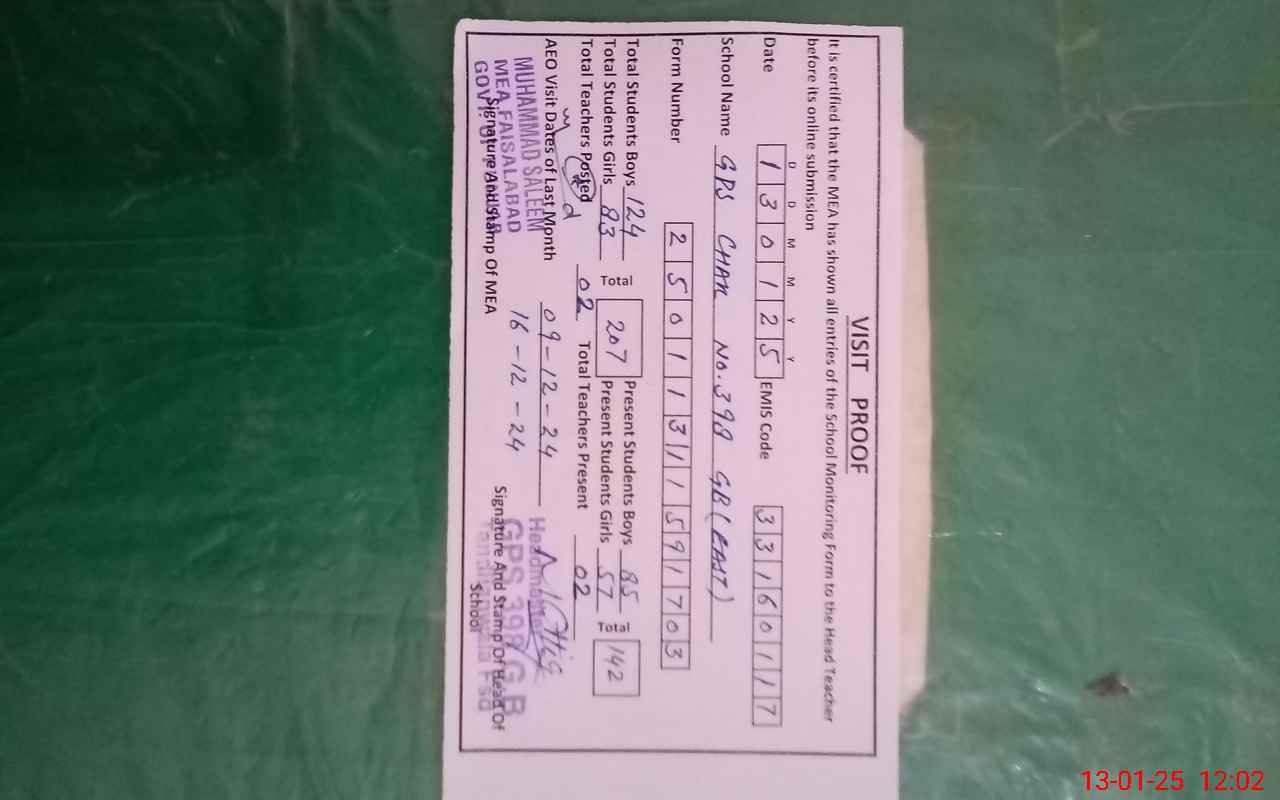 VISIT PROOF
It is certified that the MEA has shown all entries of the School Monitoring Form to the Head Teacher
before its online submission
D D M M Y Y
Date 1 3 0 1 2 5 EMIS Code 3 3 1 6 0 1 1 7
School Name GPS CHAK NO.398 GB(EAST)
Form Number 2 5 0 1 1 3 1 1 5 9 1 7 0 3
Total Students Boys 124 Total 207 Present Students Boys 85 Total 142
Total Students Girls 83 Present Students Girls 57
Total Teachers Posted 02 Total Teachers Present 02
AEO Visit Dates of Last Month 09-12-24
16-12-24
MUHAMMAD SALEEM
MEA FAISALABAD
GOVT. OF
Signature And Stamp Of MEA
Headmaster
GPS 398 G B
Tandlianwala Fsd
Signature And Stamp Of Head Of
School
13-01-25 12:02